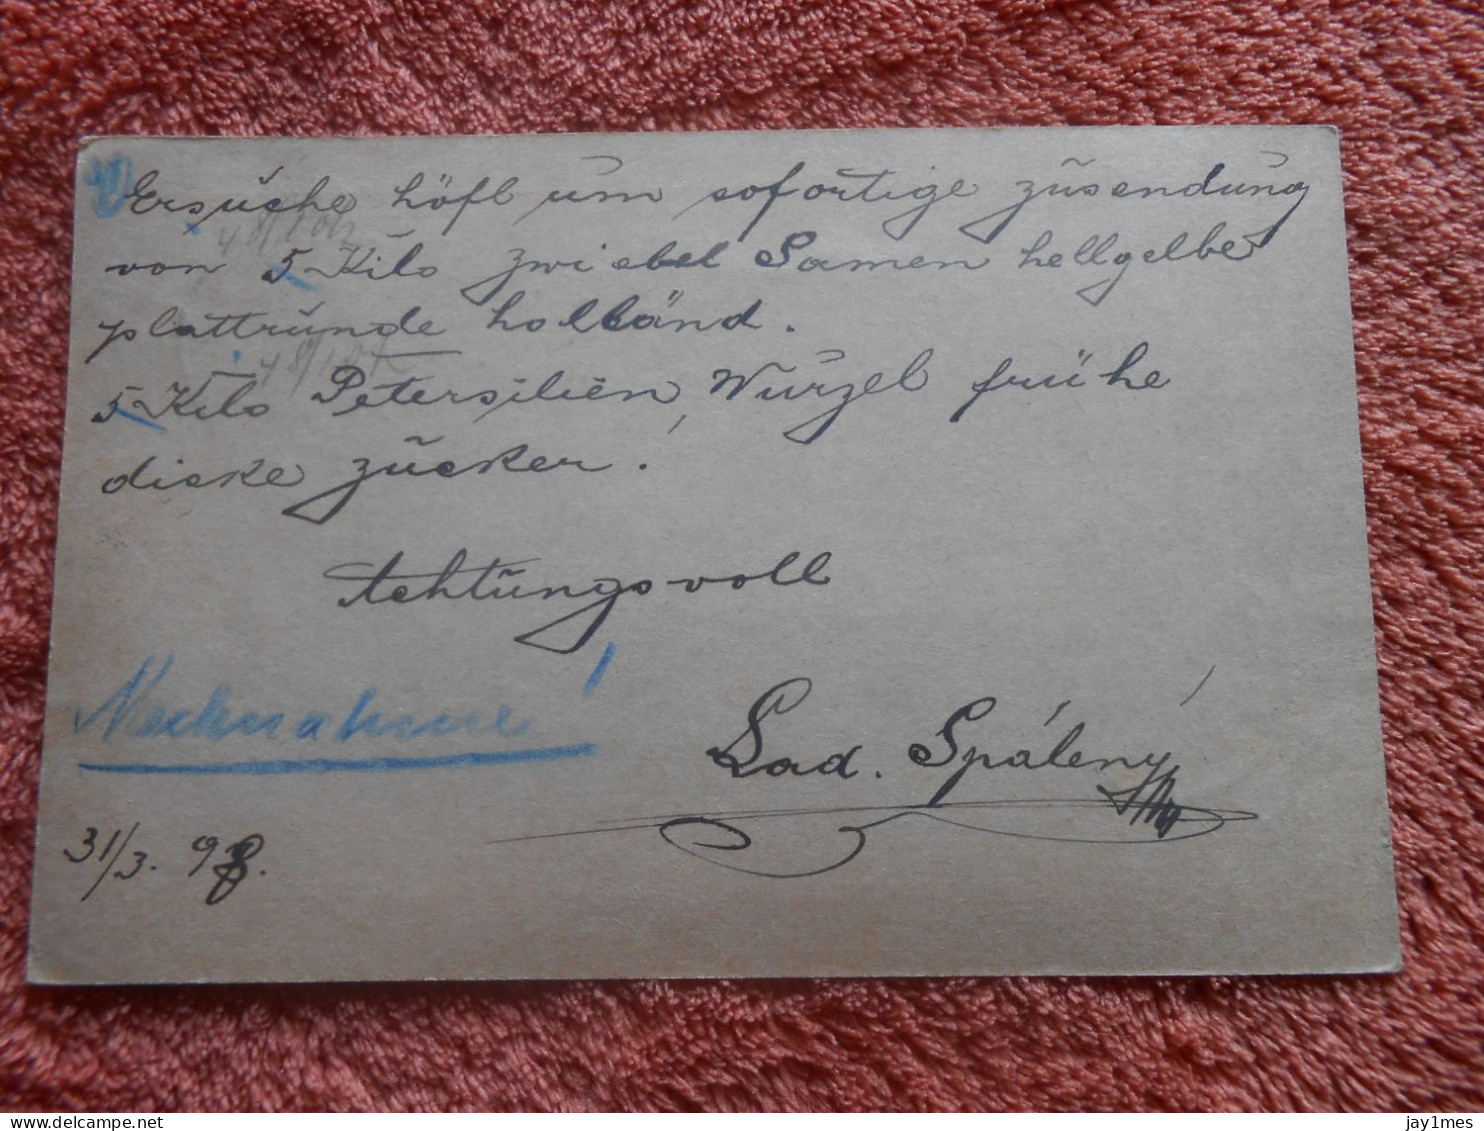 Ersuche höfl um sofortige zusendung
von 5 Kilo zwiebel Samen hellgelbe
plattrunde holländ.
5 Kilo Petersilien, Wurzel frühe
dicke zucker.
Achtungsvoll
Nachnahme!
Lad. Spálený
31/3. 98.
www.delcampe.net
jay1mes